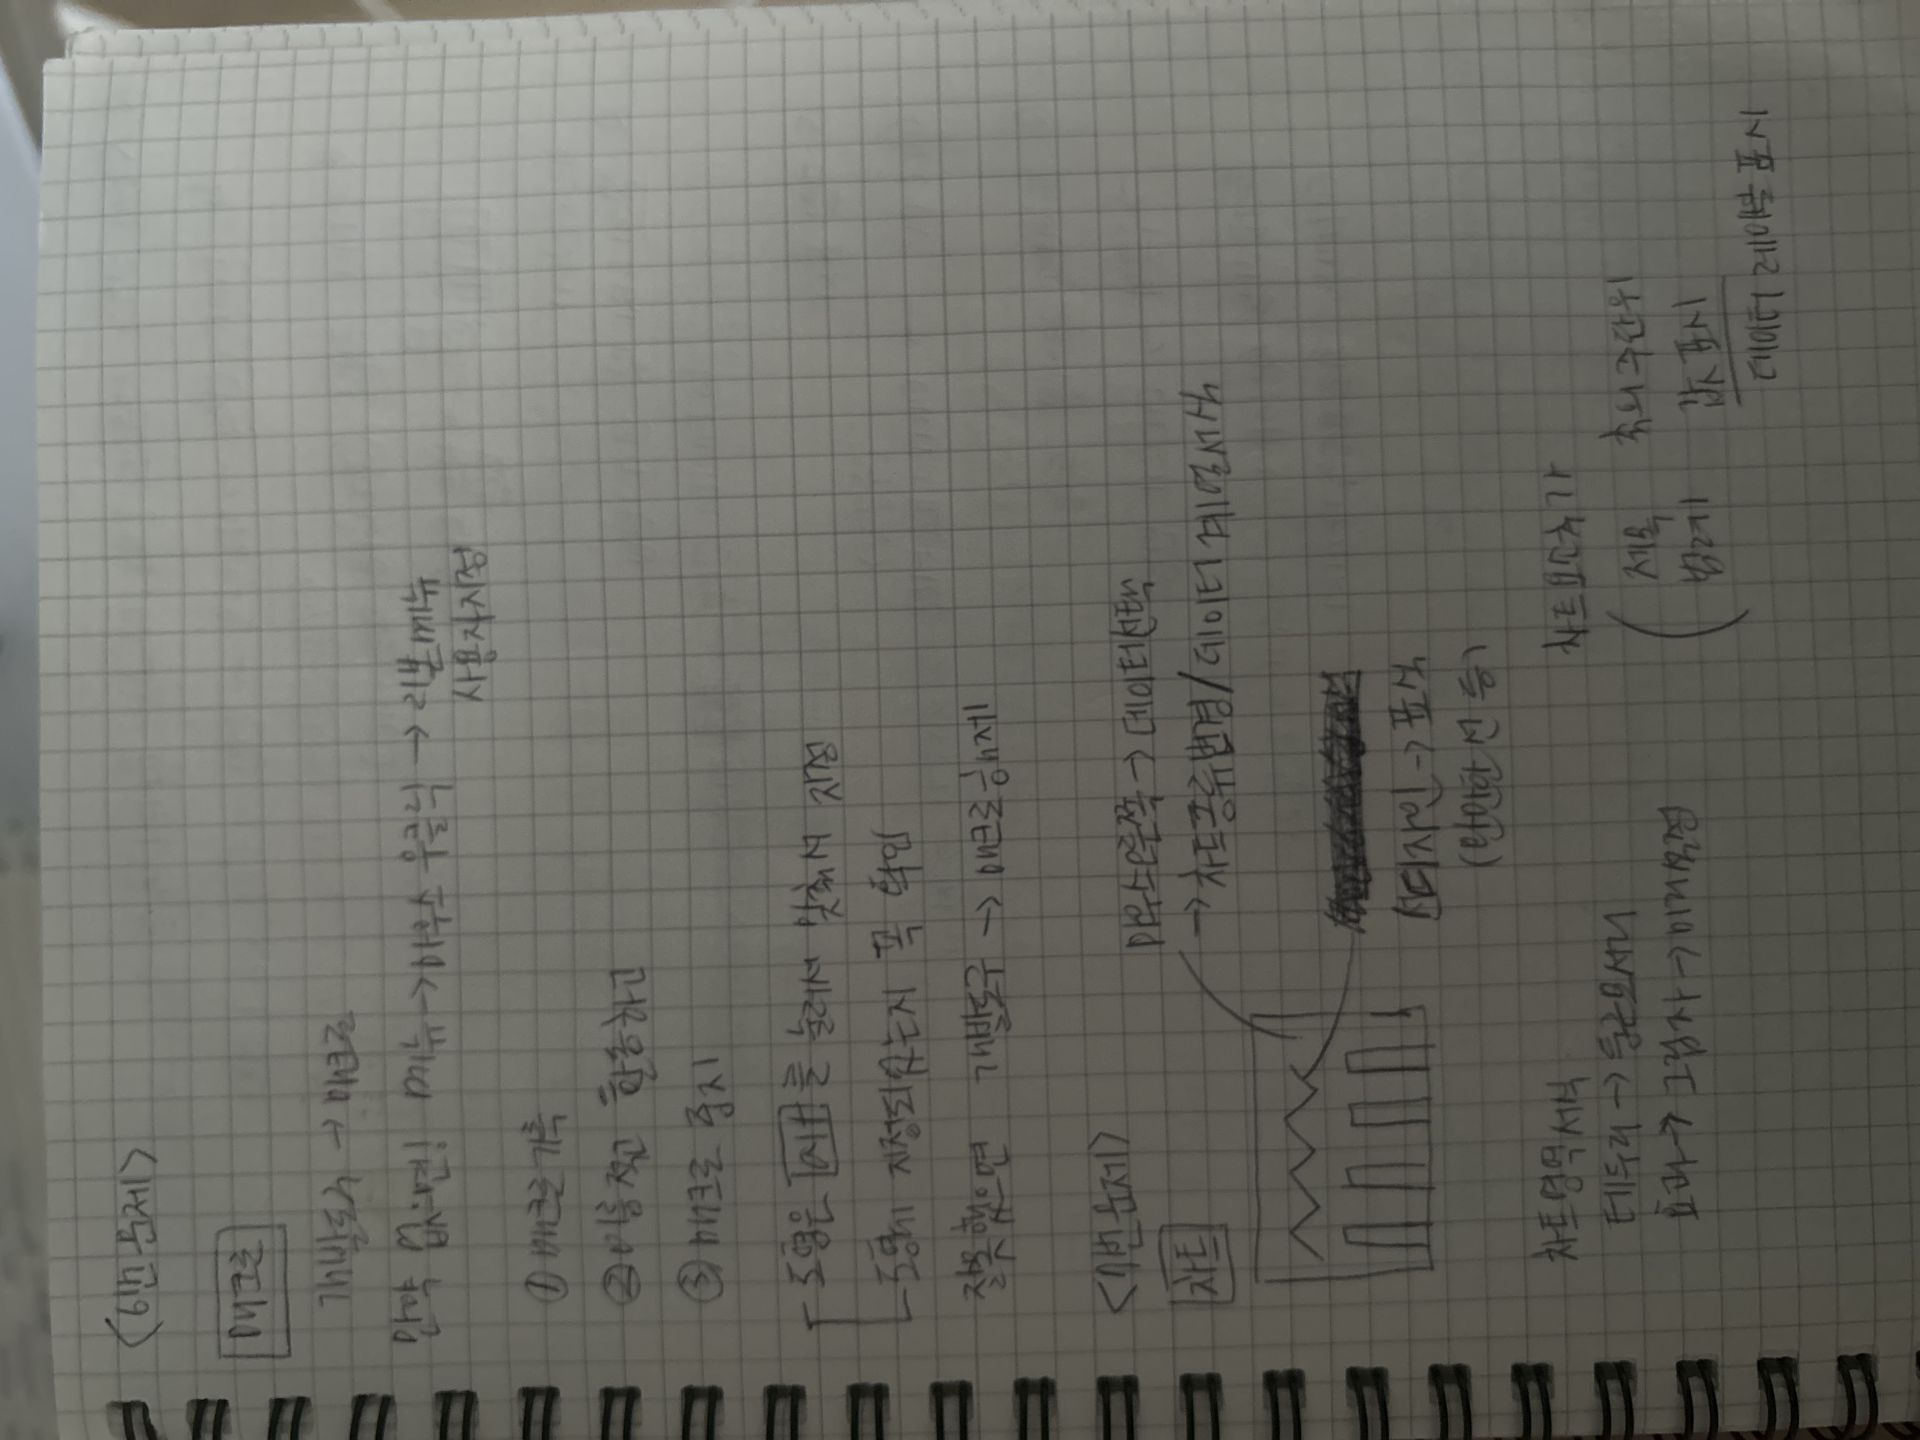 <6번문제>
매크로
개발도구 → 매크로
만약 없다면! 메뉴 → 마우스 우클릭 → 리본메뉴
사용자지정
① 매크로기록
② 이름 적고 활동하고
③ 매크로 중지
도형은 Alt 를 눌러서 맞춰서 지정
도형에 지정되있는지 꼭 확인
잘못했으면 개발도구 → 매크로 해제
<7번문제>
차트
마우스오른쪽 → 데이터선택
→ 차트종류변경/데이터 계열서식
디자인 → 표식
(완만한 선 등)
차트영역서식
테두리 → 둥근모서리
효과 → 그림자 → 미리설정
차트요소추가
제목 축의 주단위
범례 값 표시
데이터 레이블 표시